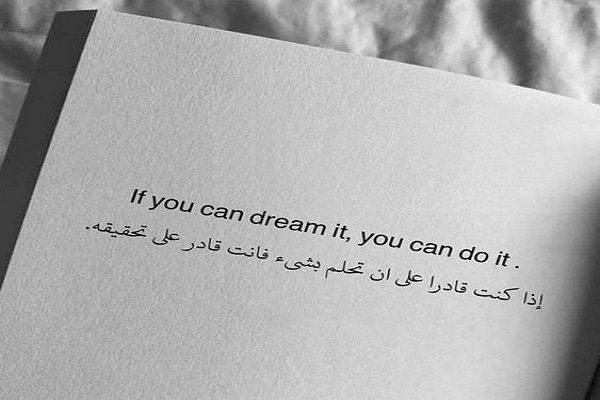 If you can dream it, you can do it .
إذا كنت قادرا على ان تحلم بشىء فانت قادر على تحقيقه.